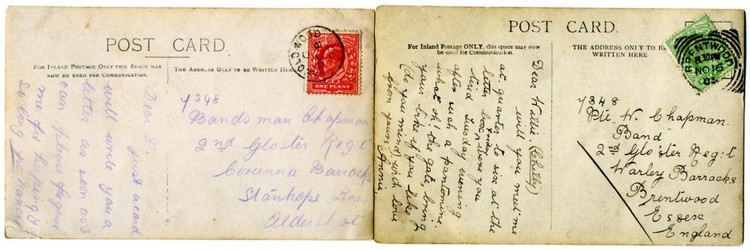 POST CARD.
FOR INLAND POSTAGE ONLY THIS SPACE MAY
NOW BE USED FOR COMMUNICATION.
THE ADDRESS ONLY TO BE
WRITTEN HERE.
ONE PENNY
Dear
Just a card
will write you a
letter as soon as
can please
me for
so long
7348
Bandsman Chapman
2nd Gloster Regt
Corunna Barracks
Stanhope Lines
Aldershot
POST CARD.
For Inland Postage ONLY, this space may now
be used for Communication.
THE ADDRESS ONLY TO BE
WRITTEN HERE
BRENTWOOD
8.30PM
NO 16
Dear Willie (Chilly)
will you meet me
at quarter to six at the
letter box
tired Tuesday evening
after such a pantomine.
what oh! the gate, bring
your bike if you like
(do you mind) with love
from yours Annie
7348
Pte W. Chapman.
Band
2nd Gloster Reg:t
Warley Barracks
Brentwood
Essex
England